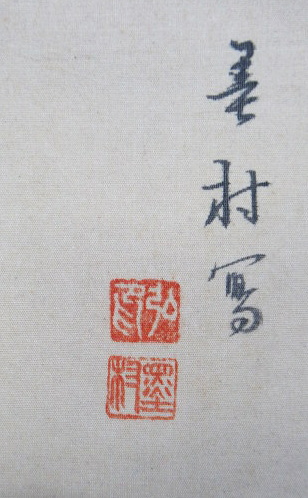 墨村寫
弘
墨村